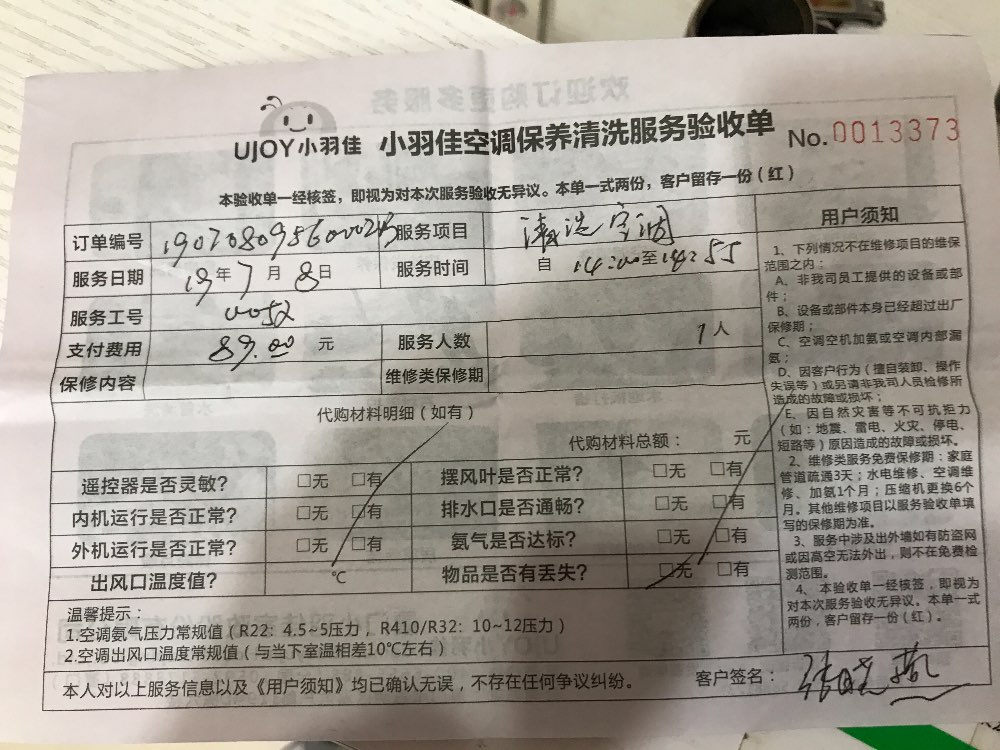 欢迎订购更多服务
UJOY小羽佳 小羽佳空调保养清洗服务验收单 No.0013373
本验收单一经核签，即视为对本次服务验收无异议。本单一式两份，客户留存一份（红）
订单编号 服务项目 清洗空调
服务日期 19年7月8日 服务时间 自 14:00至14:55
服务工号 0052
支付费用 89.00 元 服务人数 1人
保修内容 维修类保修期
代购材料明细（如有）
代购材料总额： 元
遥控器是否灵敏? □无 □有 摆风叶是否正常? □无 □有
内机运行是否正常? □无 □有 排水口是否通畅? □无 □有
外机运行是否正常? □无 □有 氨气是否达标? □无 □有
出风口温度值? ℃ 物品是否有丢失? □无 □有
温馨提示：
1.空调氨气压力常规值（R22：4.5~5压力，R410/R32：10~12压力）
2.空调出风口温度常规值（与当下室温相差10℃左右）
本人对以上服务信息以及《用户须知》均已确认无误，不存在任何争议纠纷。 客户签名：张晓燕
用户须知
1、下列情况不在维修项目的维保
范围之内：
A、非我司员工提供的设备或部
件；
B、设备或部件本身已经超过出厂
保修期；
C、空调空机加氨或空调内部漏
氨；
D、因客户行为（擅自装卸、操作
失误等）或另请非我司人员检修所
造成的故障或损坏；
E、因自然灾害等不可抗拒力
（如：地震、雷电、火灾、停电、
短路等）原因造成的故障或损坏。
2、维修类服务免费保修期：家庭
管道疏通3天；水电维修、空调维
修、加氨1个月；压缩机更换6个
月。其他维修项目以服务验收单填
写的保修期为准。
3、服务中涉及出外墙如有防盗网
或因高空无法外出，则不在免费检
测范围。
4、本验收单一经核签，即视为
对本次服务验收无异议。本单一式
两份，客户留存一份（红）。